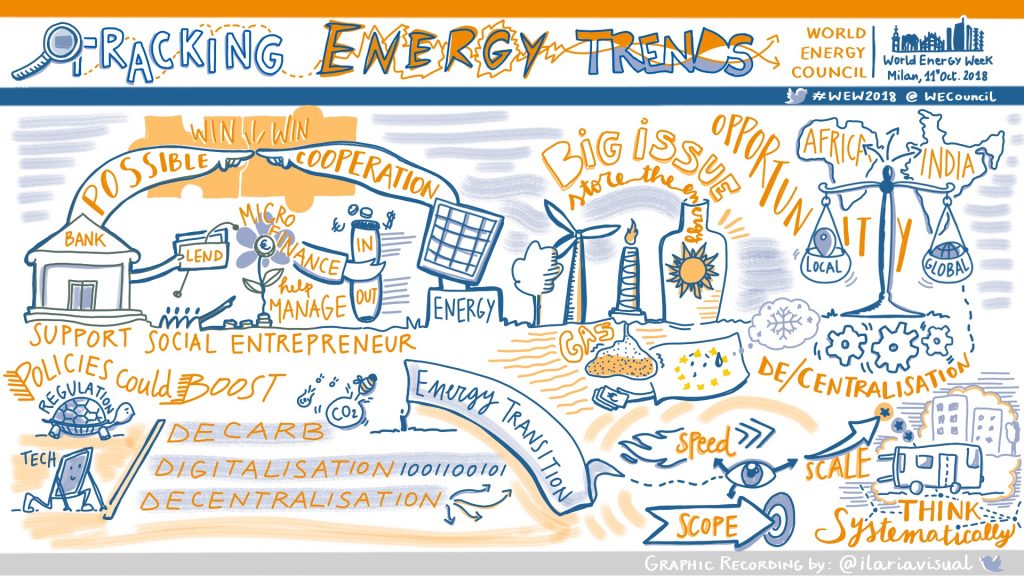 TRACKING ENERGY TRENDS
WORLD
ENERGY
COUNCIL
World Energy Week
Milan, 11° Oct. 2018
#WEW2018 @ WECouncil
WIN WIN
POSSIBLE COOPERATION
BANK
LEND
MICRO
FINANCE
help
MANAGE
€
$
IN
OUT
ENERGY
SUPPORT SOCIAL ENTREPRENEUR
BIG ISSUE
store the energy
GAS
OPPORTUNITY
AFRICA
INDIA
LOCAL
GLOBAL
DE/CENTRALISATION
POLICIES could BOOST
REGULATION
TECH
DECARB
DIGITALISATION 1001100101
DECENTRALISATION
CO2
Energy Transition
Speed
SCOPE
SCALE
THINK
Systematically
GRAPHIC RECORDING by: @ilariavisual